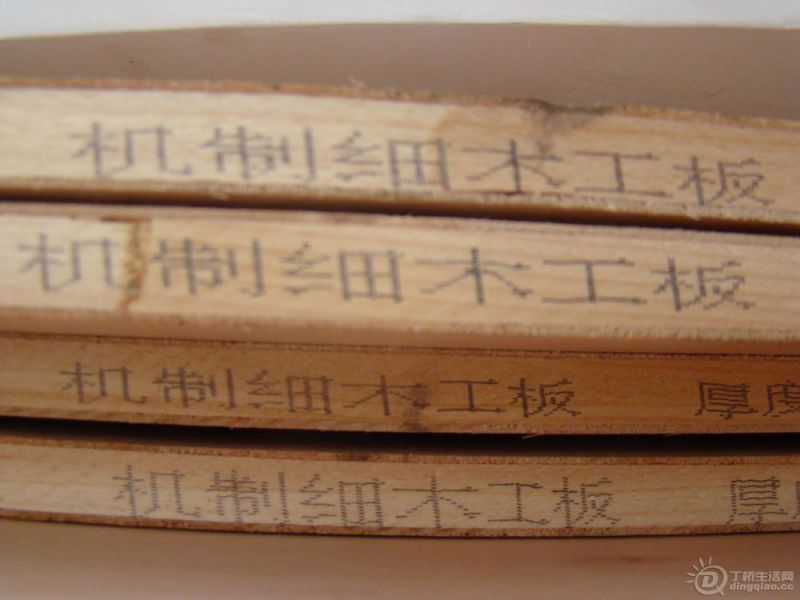 机制细木工板
机制细木工板
机制细木工板 厚度
机制细木工板 厚
丁桥生活网
dingqiao.cc